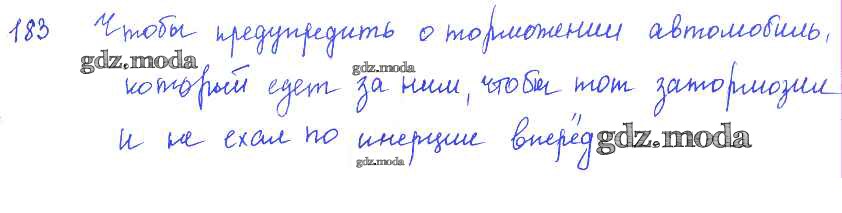 183 Чтобы предупредить о торможении автомобиль,
gdz.moda
gdz.moda
который едет за ним, чтобы тот затормозил
и не ехал по инерции вперёд
gdz.moda
gdz.moda